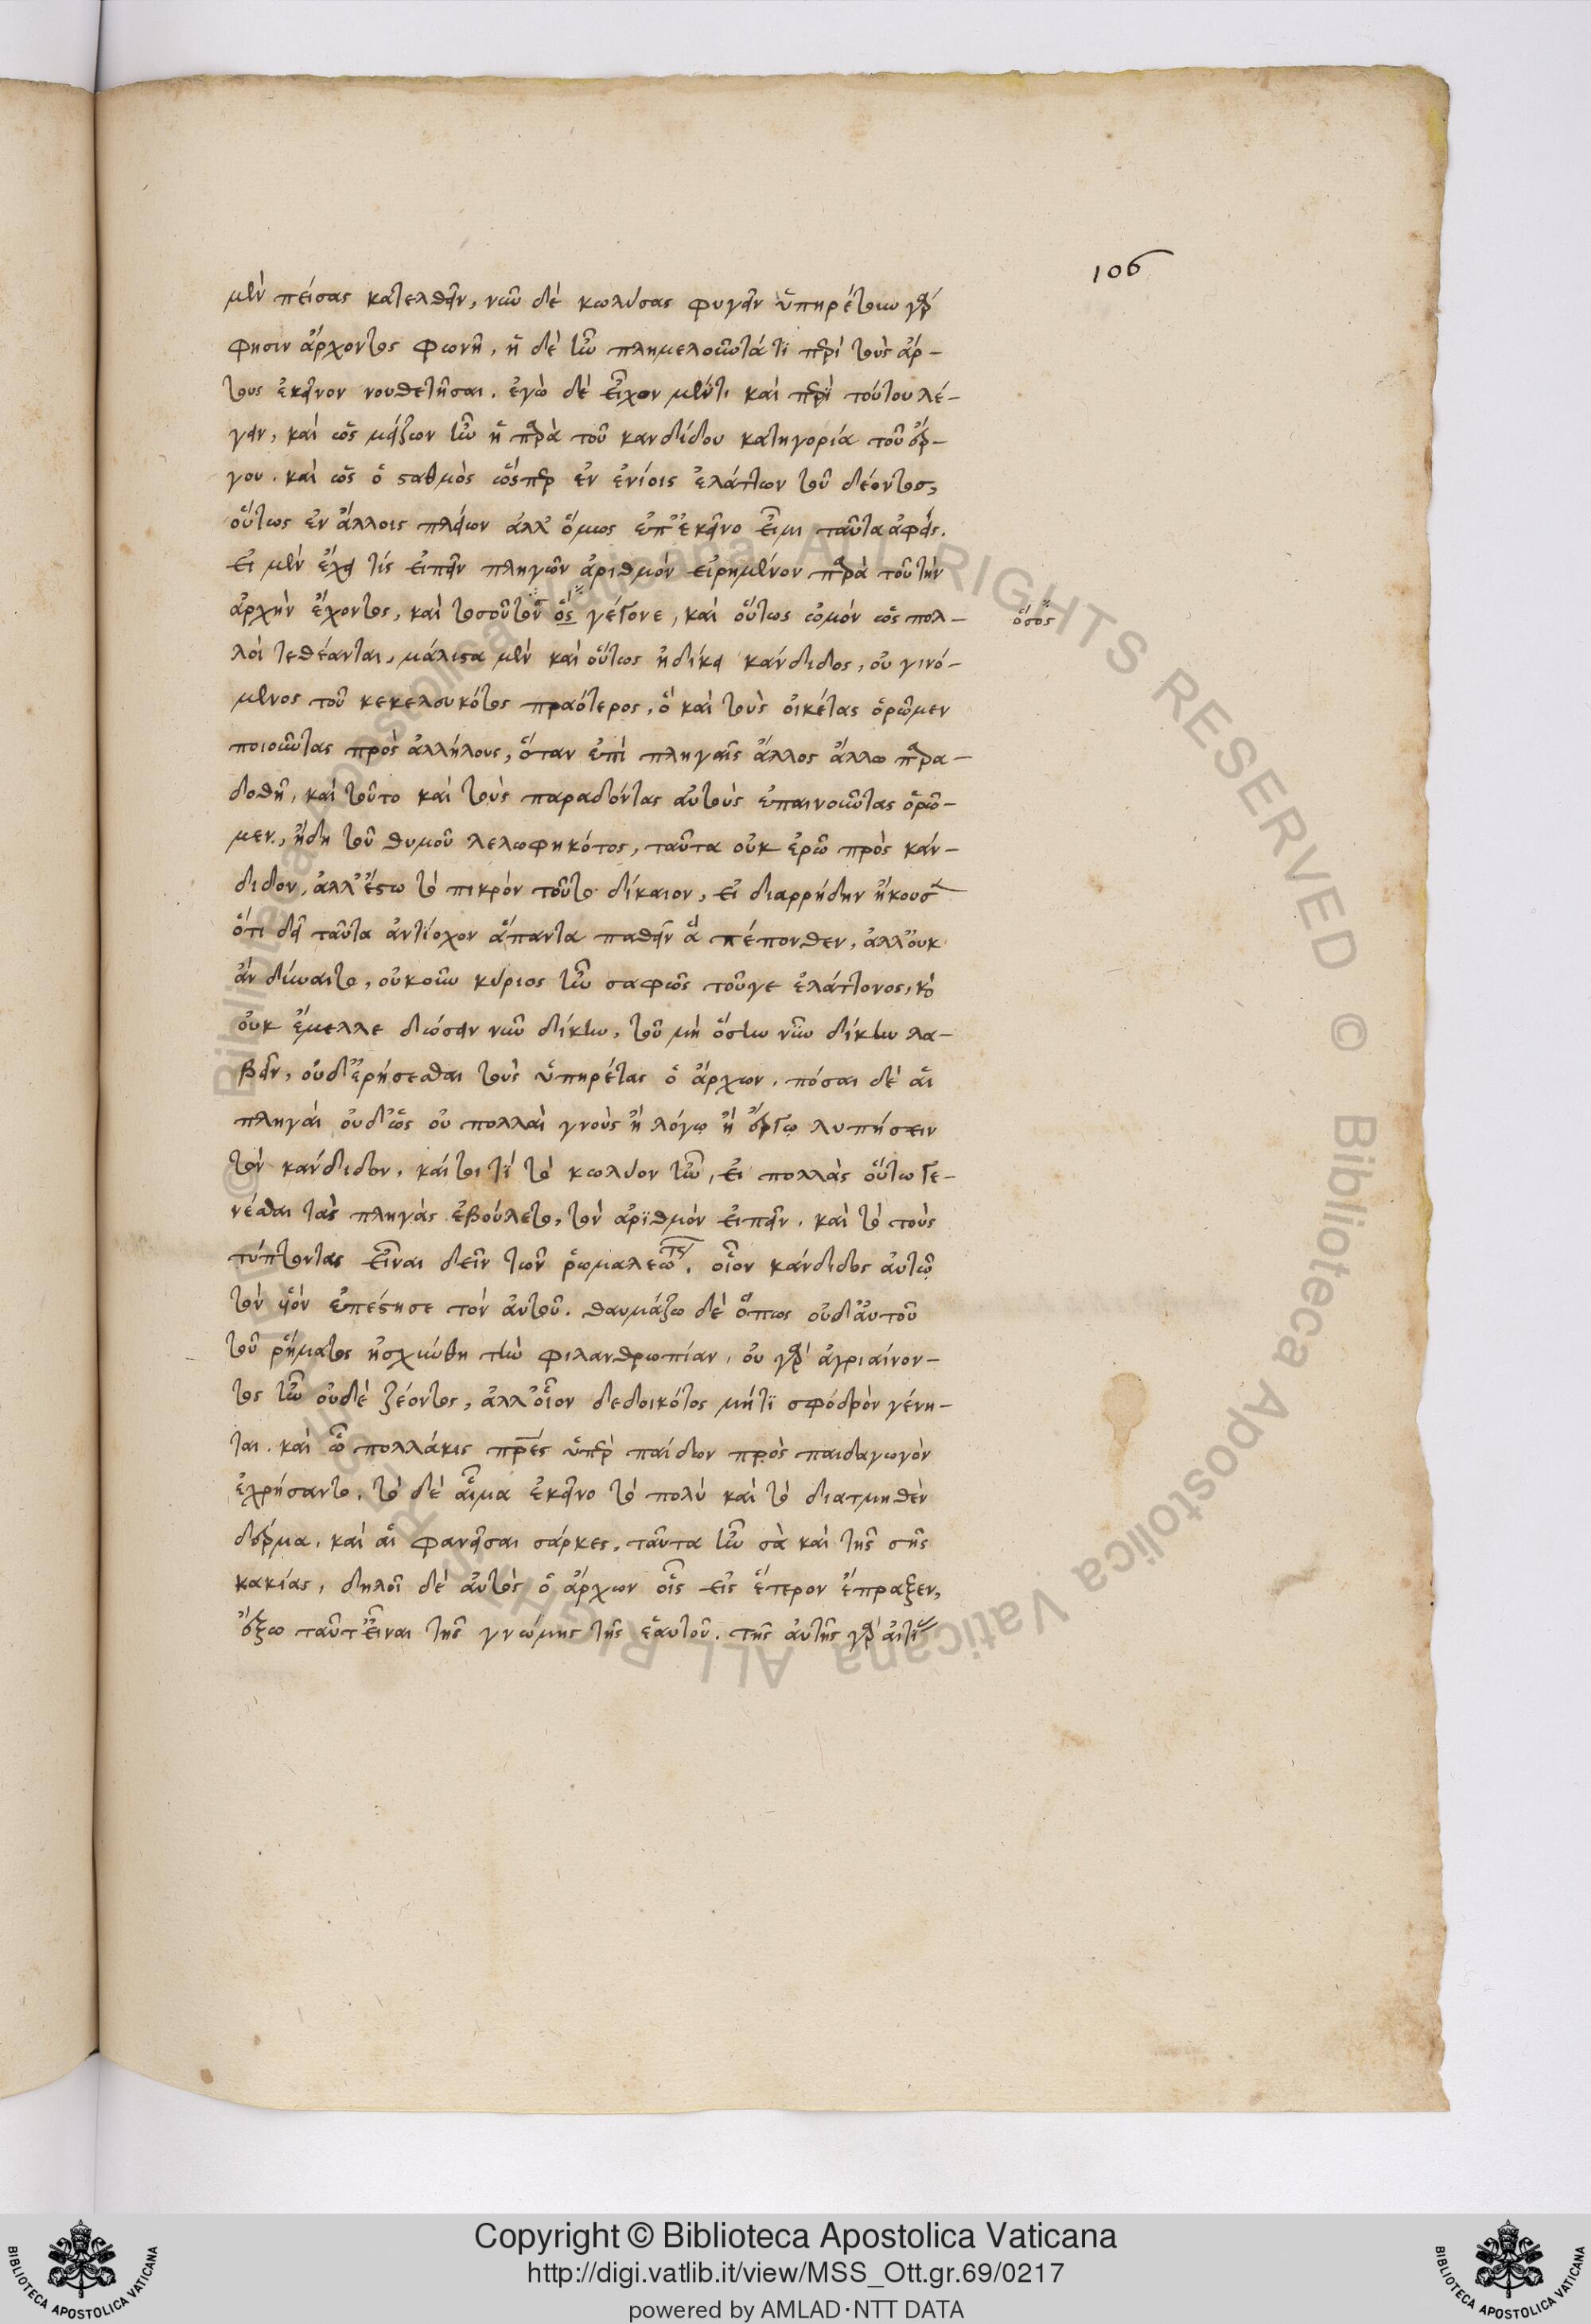 106
μὲν πείσας κατελθεῖν, νῦν δὲ κωλύσας φυγεῖν ὑπηρέτουν γάρ
φησιν ἄρχοντος φωνῇ, ἡ δὲ ἦν πλημμελοῦντά τι περὶ τοὺς ἄρ-
τους ἐκεῖνον νουθετῆσαι. ἐγὼ δὲ εἶχον μέντι καὶ περὶ τούτου λέ-
γειν, καὶ ὡς μείζων ἦν ἡ παρὰ τοῦ κανδίδου κατηγορία τοῦ ἔρ-
γου. καὶ ὡς ὁ σταθμὸς ὥσπερ ἐν ἐνίοις ἐλάττων τοῦ δέοντος,
οὕτως ἐν ἄλλοις πλείων ἀλλ' ὅμως ἐπ' ἐκεῖνο εἶμι ταῦτα ἀφείς.
εἰ μὲν ἔχει τίς εἰπεῖν πληγῶν ἀριθμὸν εἰρημένον παρὰ τοῦ τὴν
ἀρχὴν ἔχοντος, καὶ τοσοῦτον ὃς γέγονε, καὶ οὕτως ὠμὸν ὡς πολ-
ὅσος
λοὶ τεθέανται, μάλιστα μὲν καὶ οὕτως ἠδίκει κάνδιδος, οὐ γινό-
μενος τοῦ κεκελευκότος πραότερος, ὃ καὶ τοὺς οἰκέτας ὁρῶμεν
ποιοῦντας πρὸς ἀλλήλους, ὅταν ἐπὶ πληγαῖς ἄλλος ἄλλω παρα-
δοθῇ, καὶ τοῦτο καὶ τοὺς παραδόντας αὐτοὺς ἐπαινοῦντας ὁρῶ-
μεν, ἤδη τοῦ θυμοῦ λελωφηκότος, ταῦτα οὐκ ἐρῶ πρὸς κάν-
διδον, ἀλλ' ἔστω τὸ πικρὸν τοῦτο δίκαιον, εἰ διαρρήδην ἤκουσεν
ὅτι δεῖ ταῦτα ἀντίοχον ἅπαντα παθεῖν ἃ πέπονθεν, ἀλλ' οὐκ
ἂν δύναιτο, οὐκοῦν κύριος ἦν σαφῶς τοῦγε ἐλάττονος, καὶ
οὐκ ἔμελλε δώσειν νῦν δίκην, τοῦ μὴ ὅσην νῦν δίκην λα-
βεῖν, οὐδ' ἐρήσεσθαι τοὺς ὑπηρέτας ὁ ἄρχων, πόσαι δὲ αἱ
πληγαὶ οὐδ' ὡς οὐ πολλαὶ γνοὺς ἢ λόγῳ ἢ ἔργῳ λυπήσειν
τὸν κάνδιδον, καίτοι τί τὸ κωλύον ἦν, εἰ πολλὰς οὕτω γε-
νέσθαι τὰς πληγὰς ἐβούλετο, τὸν ἀριθμὸν εἰπεῖν. καὶ τὸ τοὺς
τύπτοντας εἶναι δεῖν τῶν ῥωμαλεωτέ. οἷον κάνδιδος αὐτῷ
τὸν υἱὸν ἐπέστησε τὸν αὐτοῦ. θαυμάζω δὲ ὅπως οὐδ' αὐτοῦ
τοῦ ῥήματος ᾐσχύνθη τὴν φιλανθρωπίαν, οὐ γὰρ ἀγριαίνον-
τος ἦν οὐδὲ ζέοντος, ἀλλ' οἷον δεδοικότος μήτι σφόδρον γένη-
ται. καὶ ᾧ πολλάκις πρες ὑπὲρ παίδων πρὸς παιδαγωγὸν
ἐχρήσαντο, τὸ δὲ αἷμα ἐκεῖνο τὸ πολὺ καὶ τὸ διατμηθὲν
δέρμα, καὶ αἱ φανεῖσαι σάρκες, ταῦτα ἦν σὰ καὶ τῆς σῆς
κακίας, δηλοῖ δὲ αὐτὸς ὁ ἄρχων οἷς εἰς ἕτερον ἔπραξεν,
ἔξω ταῦτ' εἶναι τῆς γνώμης τῆς ἑαυτοῦ. τῆς αὐτῆς γὰρ αἰτίας
© Biblioteca Apostolica Vaticana ALL RIGHTS RESERVED © Biblioteca Apostolica Vaticana ALL RIGHTS RESERVED
BIBLIOTECA APOSTOLICA VATICANA
Copyright © Biblioteca Apostolica Vaticana
http://digi.vatlib.it/view/MSS_Ott.gr.69/0217
powered by AMLAD·NTT DATA
BIBLIOTECA APOSTOLICA VATICANA